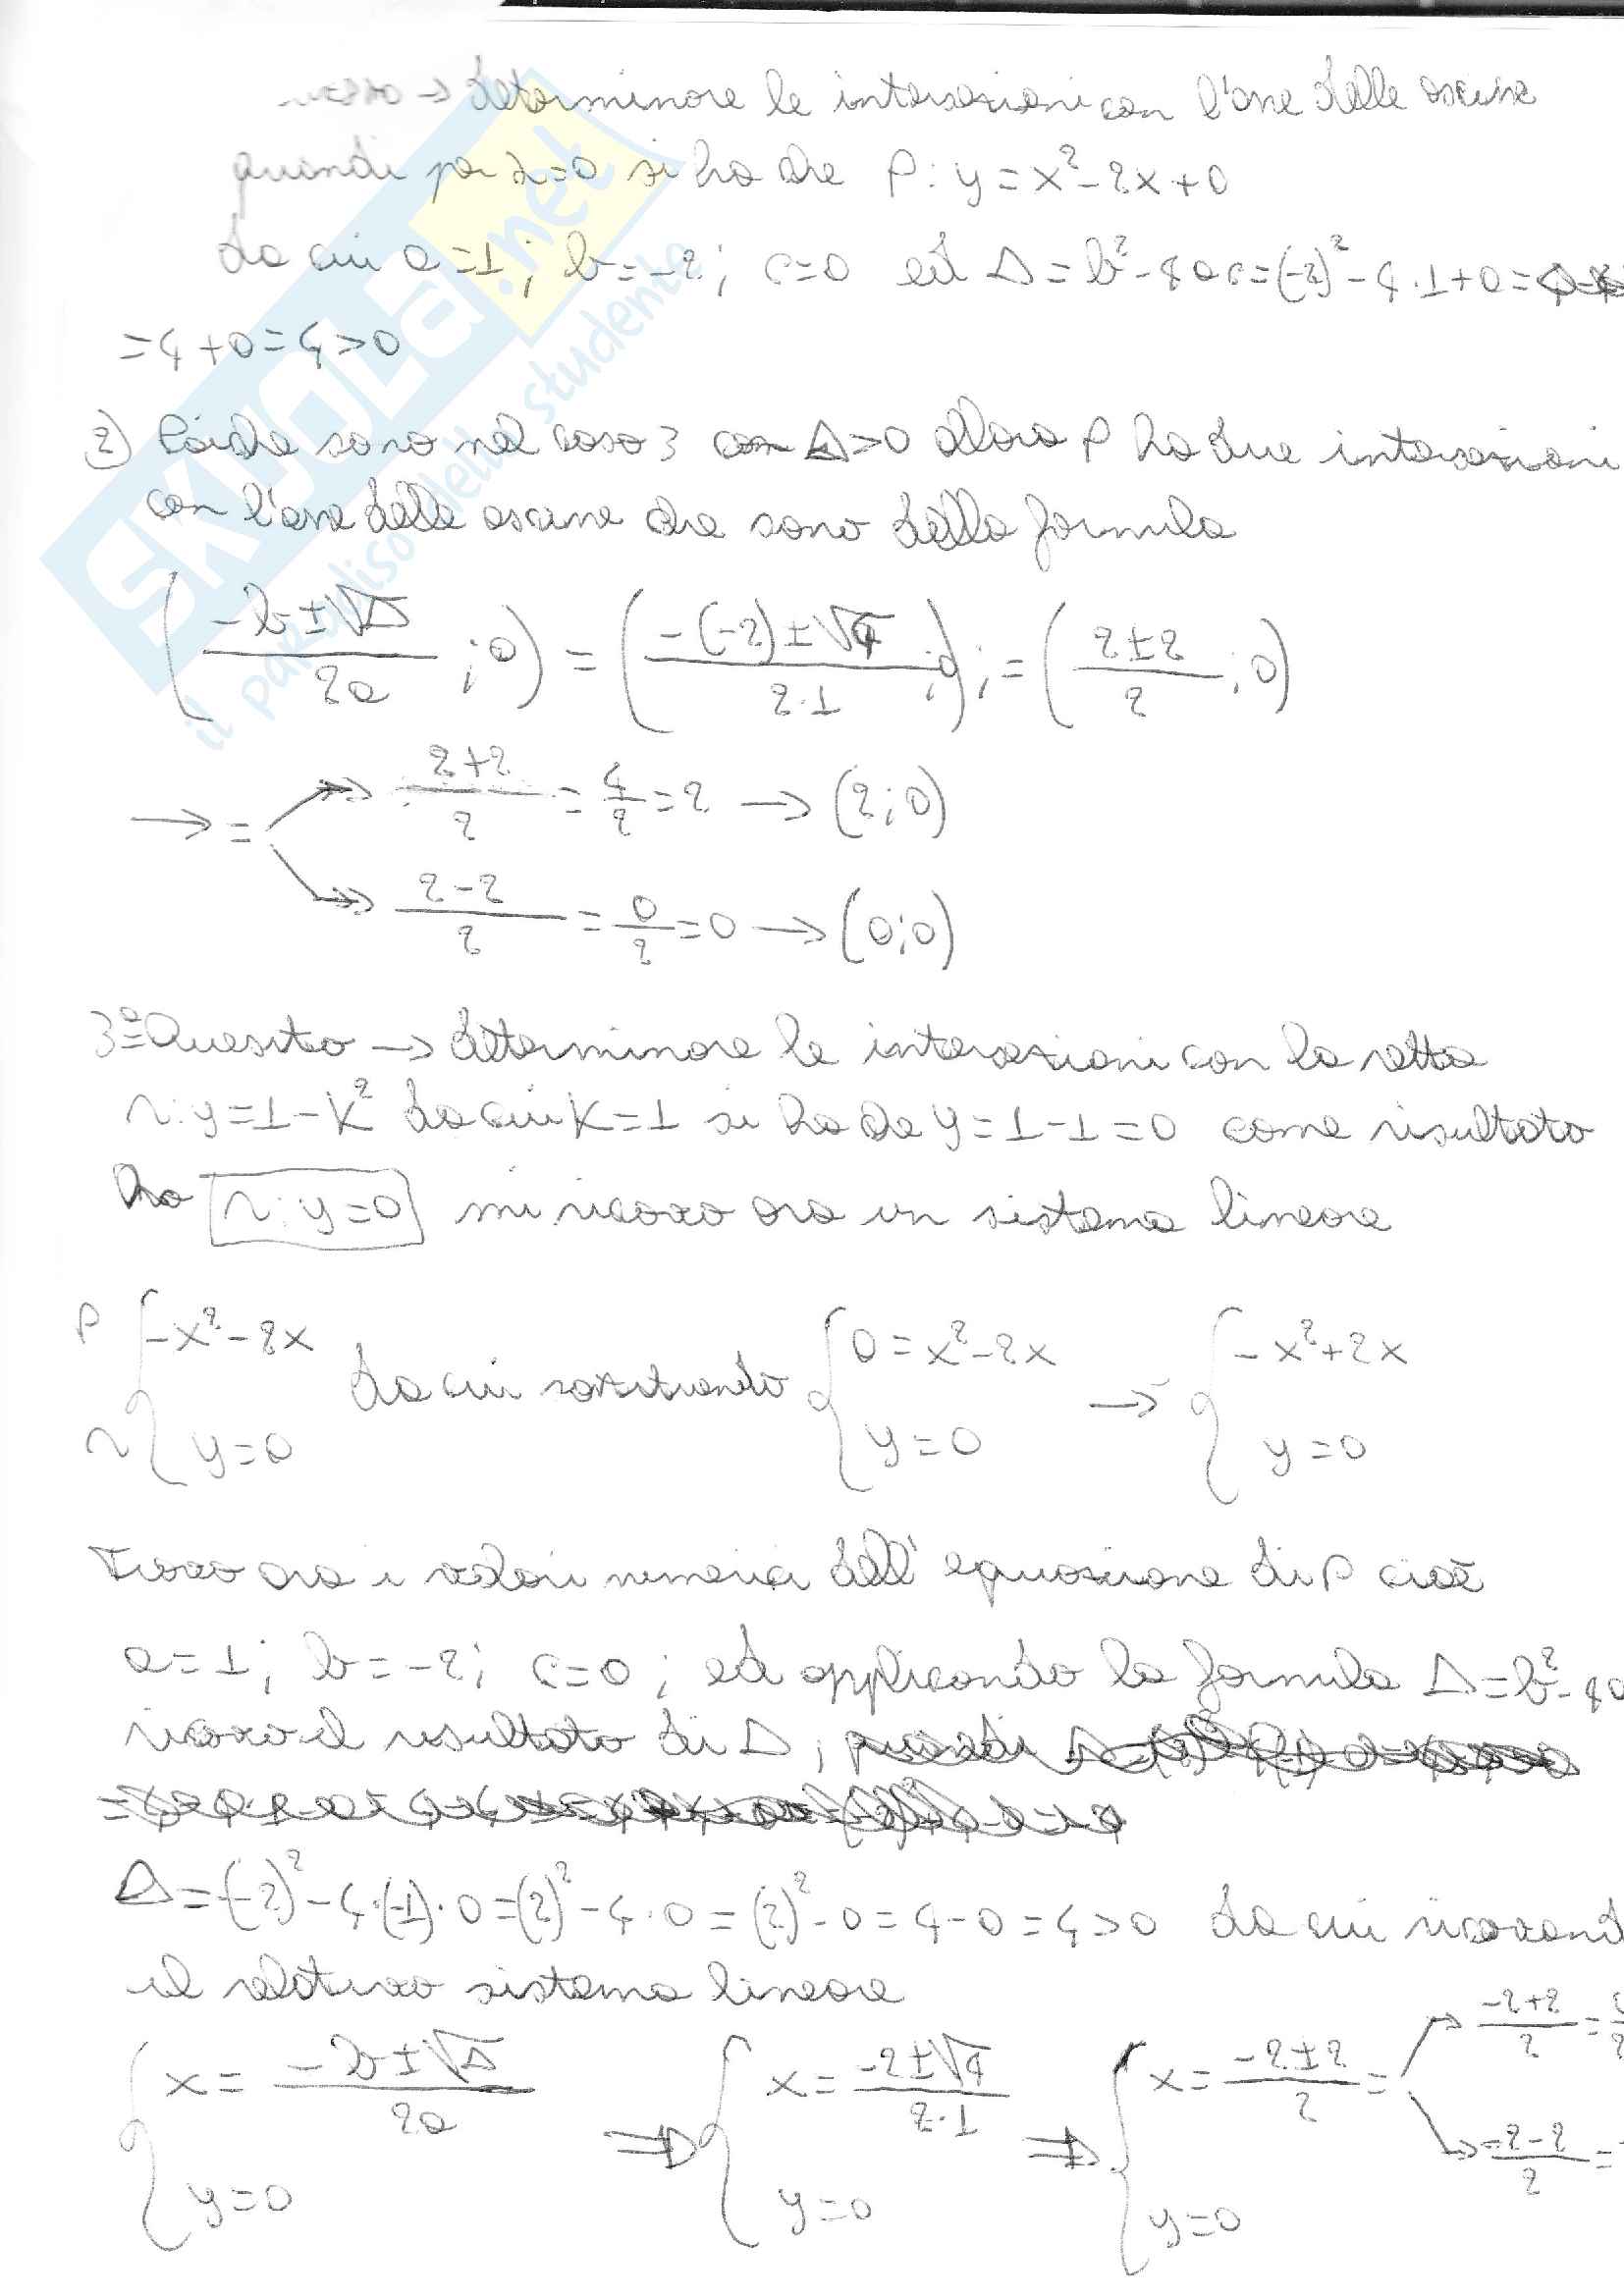 → determinare le intersezioni con l'asse delle ascisse
quindi per λ=0 si ha che P: y = x² - 2x + 0
da cui a = 1; b = -2; c = 0 ed Δ = b² - 4ac = (-2)² - 4·1+0 =
= 4+0 = 4 > 0
2) Poiché sono nel caso 3 con Δ>0 allora P ha due intersezioni
con l'asse delle ascisse che sono della formula
( (-b ± √Δ)/2a ; 0 ) = ( (-(-2) ± √4)/2·1 ; 0 ) ; = ( (2±2)/2 ; 0 )
→ = → (2+2)/2 = 4/2 = 2 → (2;0)
→ (2-2)/2 = 0/2 = 0 → (0;0)
3º Quesito → determinare le intersezioni con la retta
r: y = 1 - K² da cui K = 1 si ha che y = 1 - 1 = 0 come risultato
ho r: y = 0 mi ricavo ora un sistema lineare
P { -x² - 2x da cui sostituendo { 0 = x² - 2x → { -x² + 2x
r { y = 0 { y = 0 { y = 0
Trovo ora i valori numerici dell'equazione di P cioè
a = 1; b = -2; c = 0; ed applicando la formula Δ = b² - 4a
ricavo il risultato di Δ; quindi
Δ = (-2)² - 4·(-1)·0 = (2)² - 4·0 = (2)² - 0 = 4 - 0 = 4 > 0 da cui ricavand
il relativo sistema lineare
{ x = (-b ± √Δ)/2a ⇒ { x = (-2 ± √4)/2·1 ⇒ { x = (-2 ± 2)/2 = → (-2+2)/2 =
→ (-2-2)/2 =
{ y = 0 { y = 0 { y = 0
SKUOLA.net
il paradiso dello studente